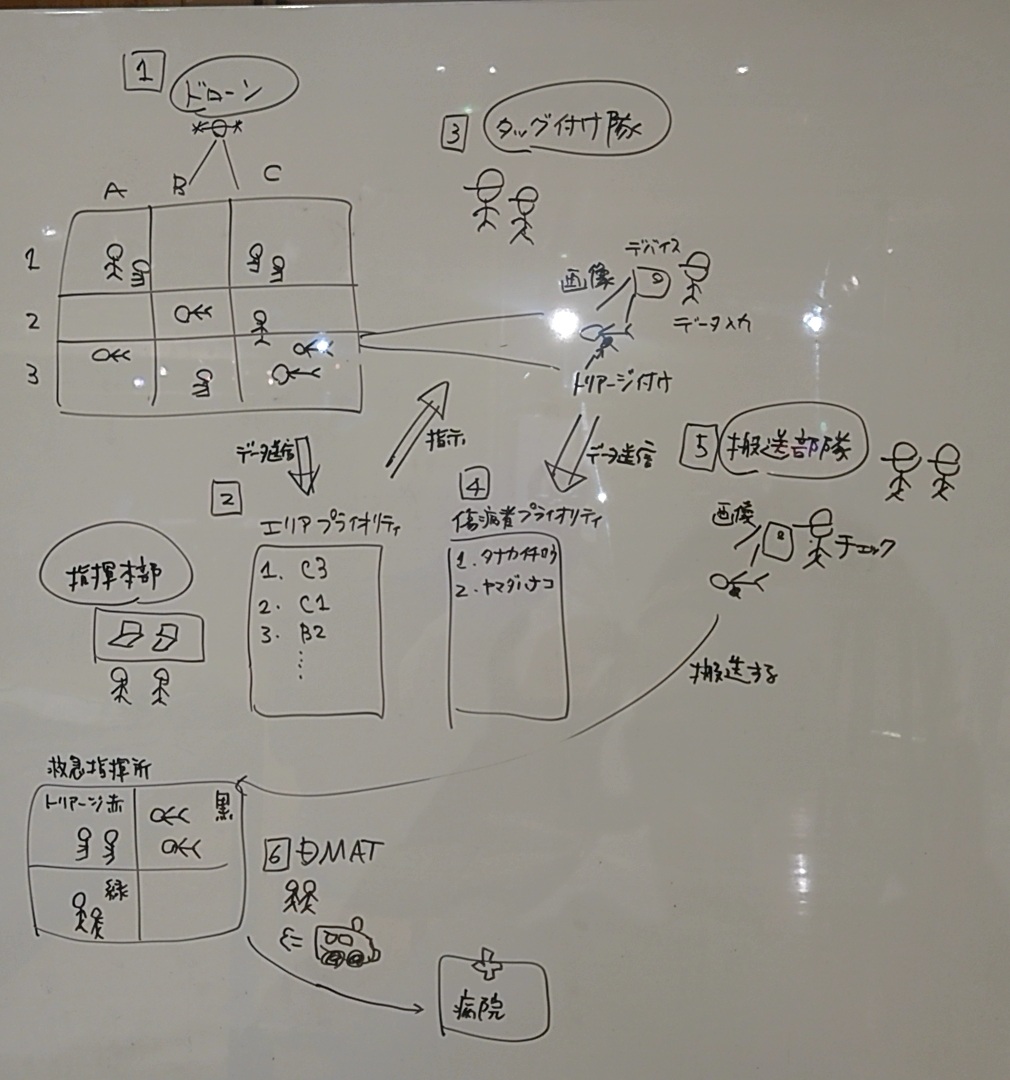 1
ドローン
A B C
1
2
3
3
タッグ付け隊
デバイス
画像
データ入力
トリアージ付け
データ送信
指示
データ送信
2
エリアプライオリティ
1. C3
2. C1
3. B2
4
傷病者プライオリティ
1. タナカイチロウ
2. ヤマダハナコ
5
搬送部隊
画像
チェック
搬送する
指揮本部
救急指揮所
トリアージ赤
黒
緑
6
DMAT
病院